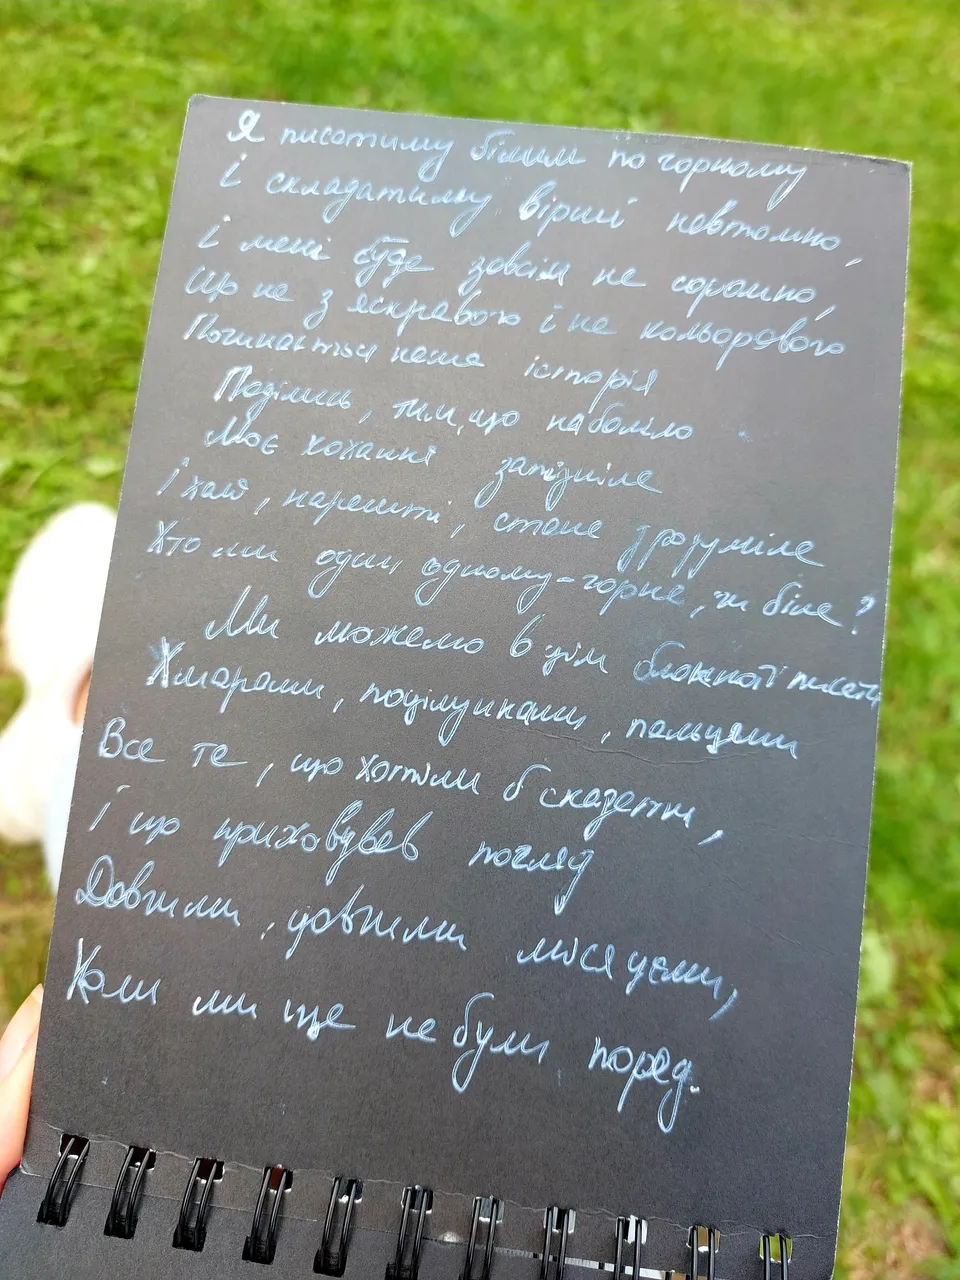 Я писатиму білим по чорному
і складатиму вірші невтомно,
і мені буде зовсім не соромно,
Що не з яскравого і не кольорового
Починається наша історія
Поділись, тим, що наболіло
Моє кохання запізніле
І хай, нарешті, стане зрозуміле
Хто ми один одному - чорне, чи біле?
Ми можемо в цім блокноті писати
Хмарами, поцілунками, пальцями
Все те, що хотіли б сказати,
і що приховував погляд
Довгими, довгими місяцями,
Коли ми ще не були поряд.